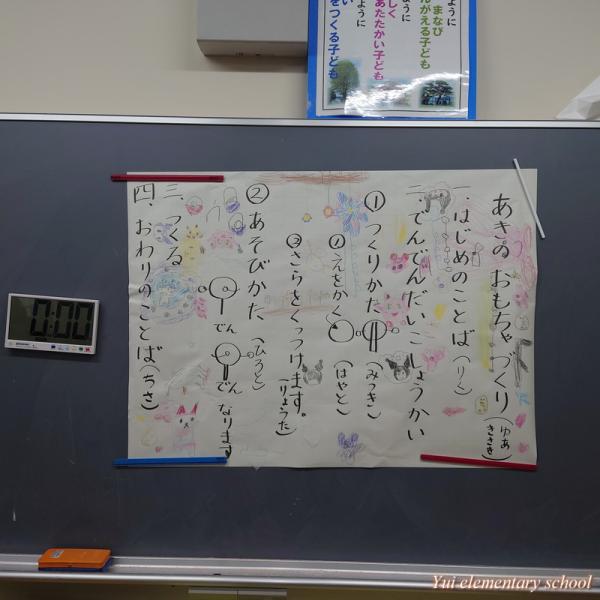 ように
まなび
んがえる子ども
ように
しく
あたたかい子ども
ように
い
をつくる子ども
あきの おもちゃ づくり(ゆあ ききき)
一.はじめのことば(りく)
二.でんでんだいこしょうかい
① つくりかた (みつき)
① えをかく (はやと)
② さらをくっつけます。(りょうた)
② あそびかた (ひろと)
でん でん なります
三.つくる
四.おわりのことば(ちさ)
0:00
Yui elementary school